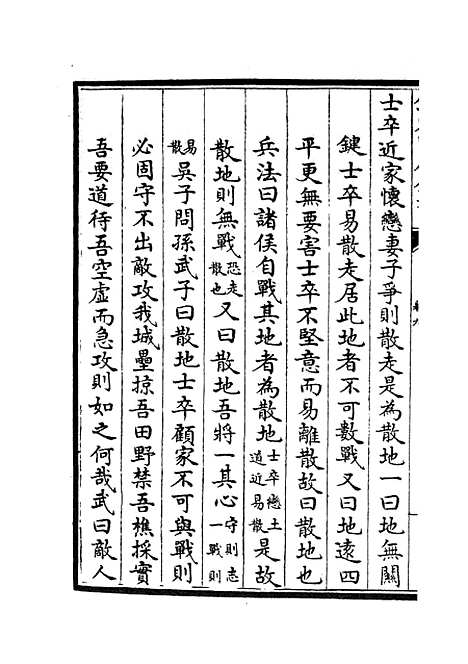 士卒近家懷戀妻子爭則散走是為散地一曰地無關
鍵士卒易散走居此地者不可數戰又曰地遠四
平更無要害士卒不堅意而易離散故曰散地也
兵法曰諸侯自戰其地者為散地士卒戀土道近易散是故
散地則無戰恐走散也又曰散地吾將一其心守則志一戰則
易散吳子問孫武子曰散地士卒顧家不可與戰則
必固守不出敵攻我城壘掠吾田野禁吾樵採實
吾要道待吾空虛而急攻則如之何哉武曰敵人